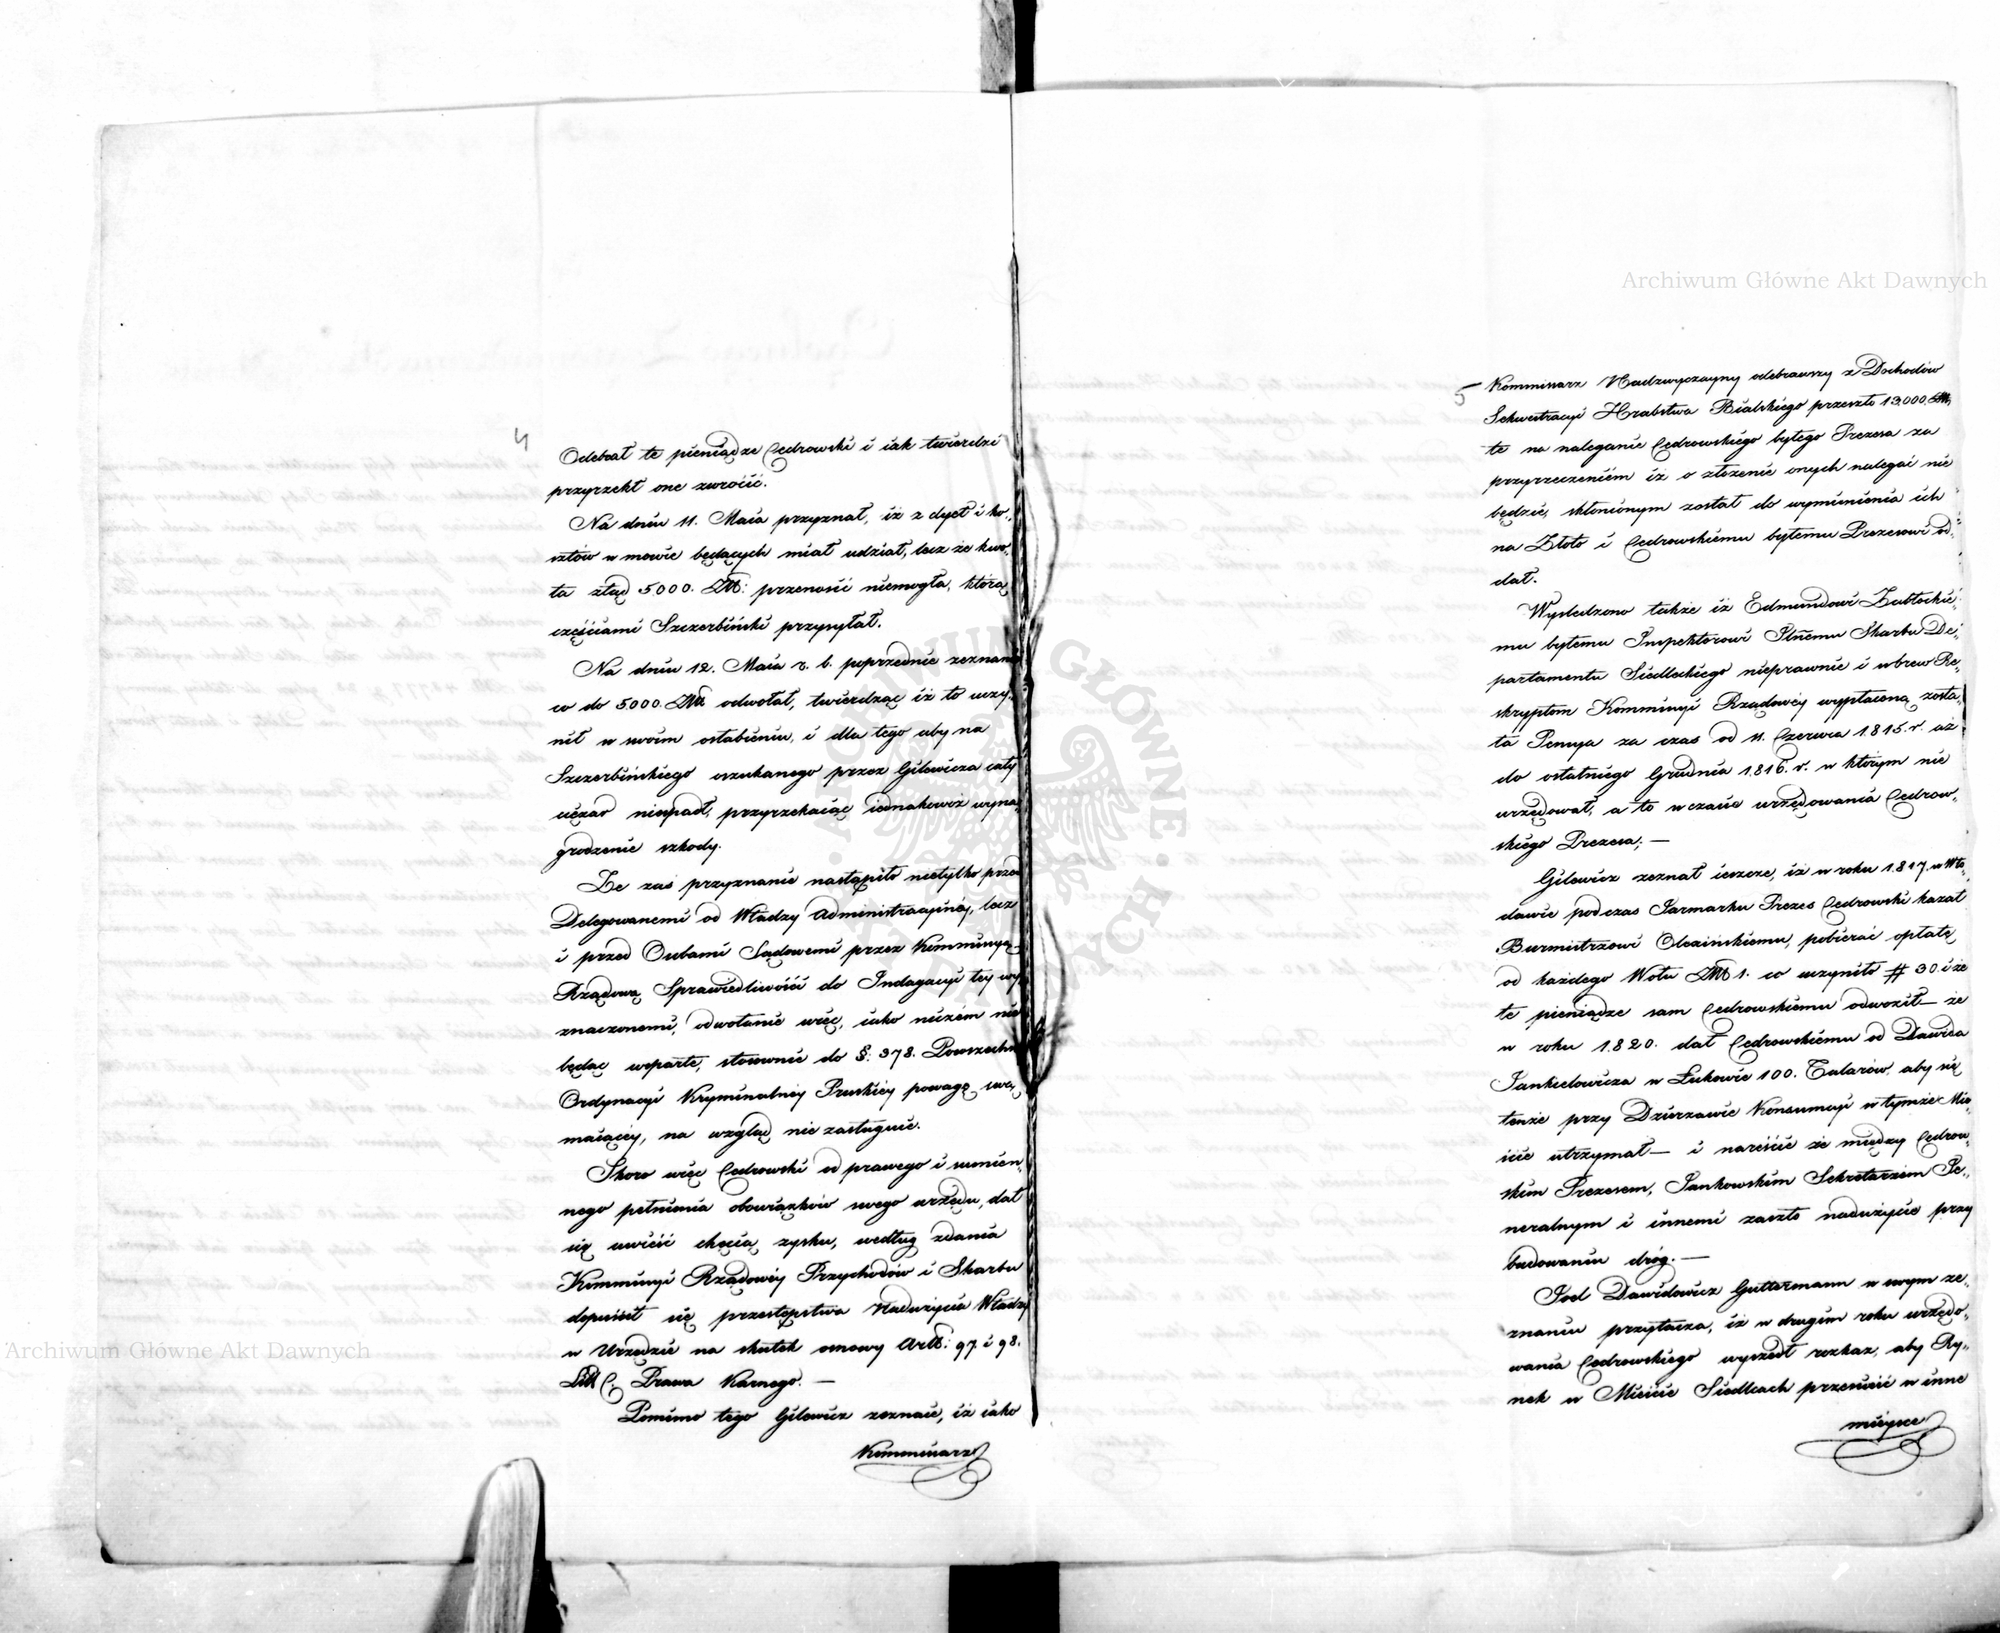 4
Odebrał te pieniądze Cedrowski i iak twierdzi
przyrzekł one zwrócić.
Na dniu 11. Maia przyznał, iż z dyet i ko„
sztów w mowie będących miał udział, lecz że kwo„
ta ztąd 5000. Złł: przenosić niemogła, którą
częściami Szczerbiński przysyłał.
Na dniu 12. Maia r. b. poprzednie zeznanie
co do 5000. Złł odwołał, twierdząc iż to uczy„
nił w swoim osłabieniu, i dla tego aby na
Szczerbińskiego oszukanego przez Gilewicza cały
ciężar niespadł, przyrzekaiąc iednakowoż wyna„
grodzenie szkody.
Ze zaś przyznanie nastąpiło nietylko przed
Delegowanemi od Władzy Administracyinéy, lecz
i przed Osobami Sądowemi przez Kommissyą
Rządową Sprawiedliwości do Indagacyi tey wy„
znaczonemi, odwołanie więc, iako niczém nie
będąc wsparte, stosownie do §: 378. Powszechn
Ordynacyi Kryminalnéy Pruskiéy powagę swą
maiącéy, na wzgląd nie zasługuie.
Skoro więc Cedrowski od prawego i sumien„
nego pełnienia obowiązków swego urzędu, dał
się uwieść chęcią zysku, według zdania
Kommissyi Rządowéy Przychodów i Skarbu
dopuścił się przestępstwa Nadużycia Władzy
w Urzędzie na skutek osnowy Artt: 97. i 98.
Litt C. Prawa Karnego. —
Pomimo tego Gilewicz zeznaie, iż iako
Kommissarz
5
Kommissarz Nadzwyczayny odebrawszy z Dochodów
Sekwestracyi Hrabstwa Bialskiego przeszło 13.000. Złł,
te na naleganie Cedrowskiego byłego Prezesa za
przyrzeczeniem iż o złożenie onych nalegać nie
będzie, skłonionym został do wymienienia ich
na Złoto i Cedrowskiemu byłemu Prezesowi od„
dał.
Wyśledzono także iż Edmundowi Zabłockie„
mu byłemu Inspektorowi Skarbu De„
partamentu Siedleckiego nieprawnie i wbrew Re„
skryptom Kommissyi Rządowéy wypłaconą zosta„
ła Pensya za czas od 11. Czerwca 1815. r. aż
do ostatniego Grudnia 1816. r. w którym nie
urzędował, a to w czasie urzędowania Cedrow„
skiego Prezesa; —
Gilewicz zeznał ieszcze, iż w roku 1817. w Wło„
dawie podczas Jarmarku Prezes Cedrowski kazał
Burmistrzowi Olszińskiemu, pobierać opłatę
od każdego Wołu Złł 1. co uczyniło # 30. i że
te pieniądze sam Cedrowskiemu odwoził — że
w roku 1820. dał Cedrowskiemu od Dawida
Jankielowicza w Łukowie 100. Talarów, aby się
tenże przy Dzierzawie Konsumcyi w tymże Mie„
ście utrzymał — i nareście że między Cedrow„
skim Prezesem, Jankowskim Sekretarzem Je„
neralnym i innemi zaszło nadużycie przy
budowaniu dróg. —
Joel Dawidowicz Guttermann w swym ze„
znaniu przytacza, iż w drugim roku urzędo„
wania Cedrowskiego wyszedł rozkaz, aby Ry„
nek w Mieście Siedlcach przenieść w inne
mieysce
Archiwum Główne Akt Dawnych
Archiwum Główne Akt Dawnych
ARCHIWUM GŁÓWNE AKT DAWNYCH